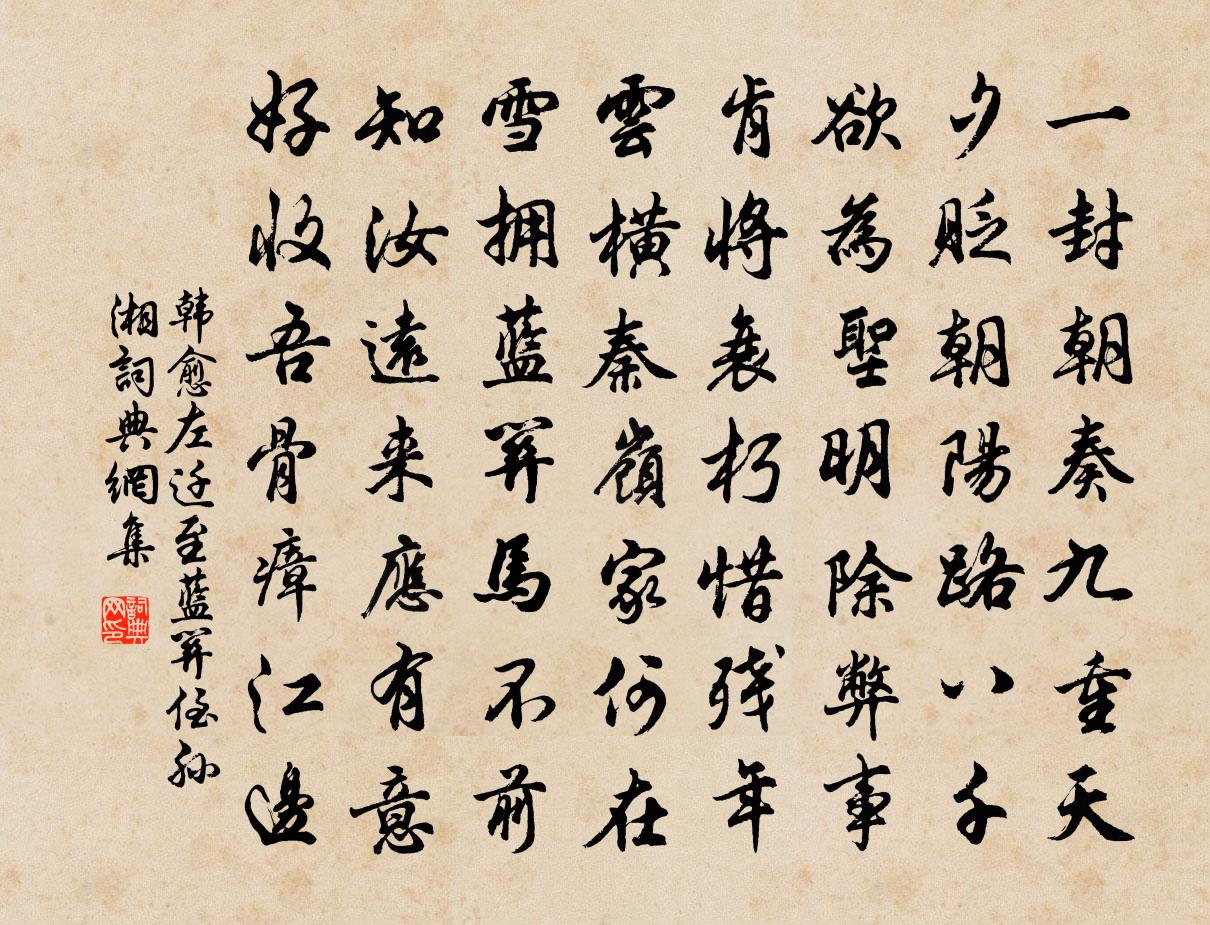 一封朝奏九重天
夕貶朝陽路八千
欲為聖明除弊事
肯將衰朽惜残年
雲横秦嶺家何在
雪拥藍関馬不前
知汝遠来應有意
好收吾骨瘴江邊
韩愈左迁至藍関侄孙
湘詞典網集
詞典
网印